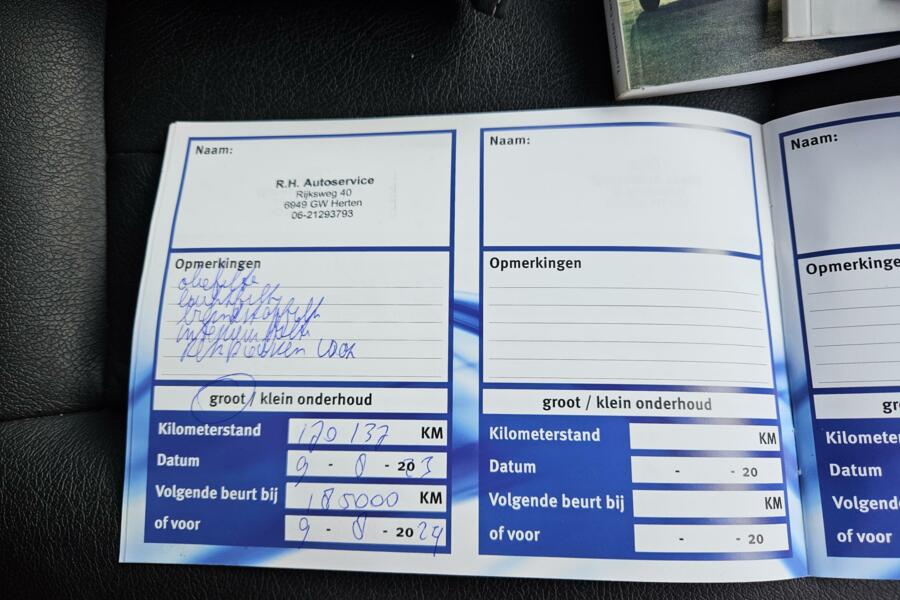 Naam:
R.H. Autoservice
Rijksweg 40
6949 GW Herten
06-21293793
Opmerkingen
oliefilte
luchtfilt
brandstoffilt
interieurfilte
remblokken voor
groot / klein onderhoud
Kilometerstand 170 137 KM
Datum 9 - 8 - 2023
Volgende beurt bij 185000 KM
of voor 9 - 8 - 2024
Naam:
Opmerkingen
groot / klein onderhoud
Kilometerstand KM
Datum - - 20
Volgende beurt bij KM
of voor - - 20
Naam:
Opmerkinge
gr
Kilometer
Datum
Volgend
of voor